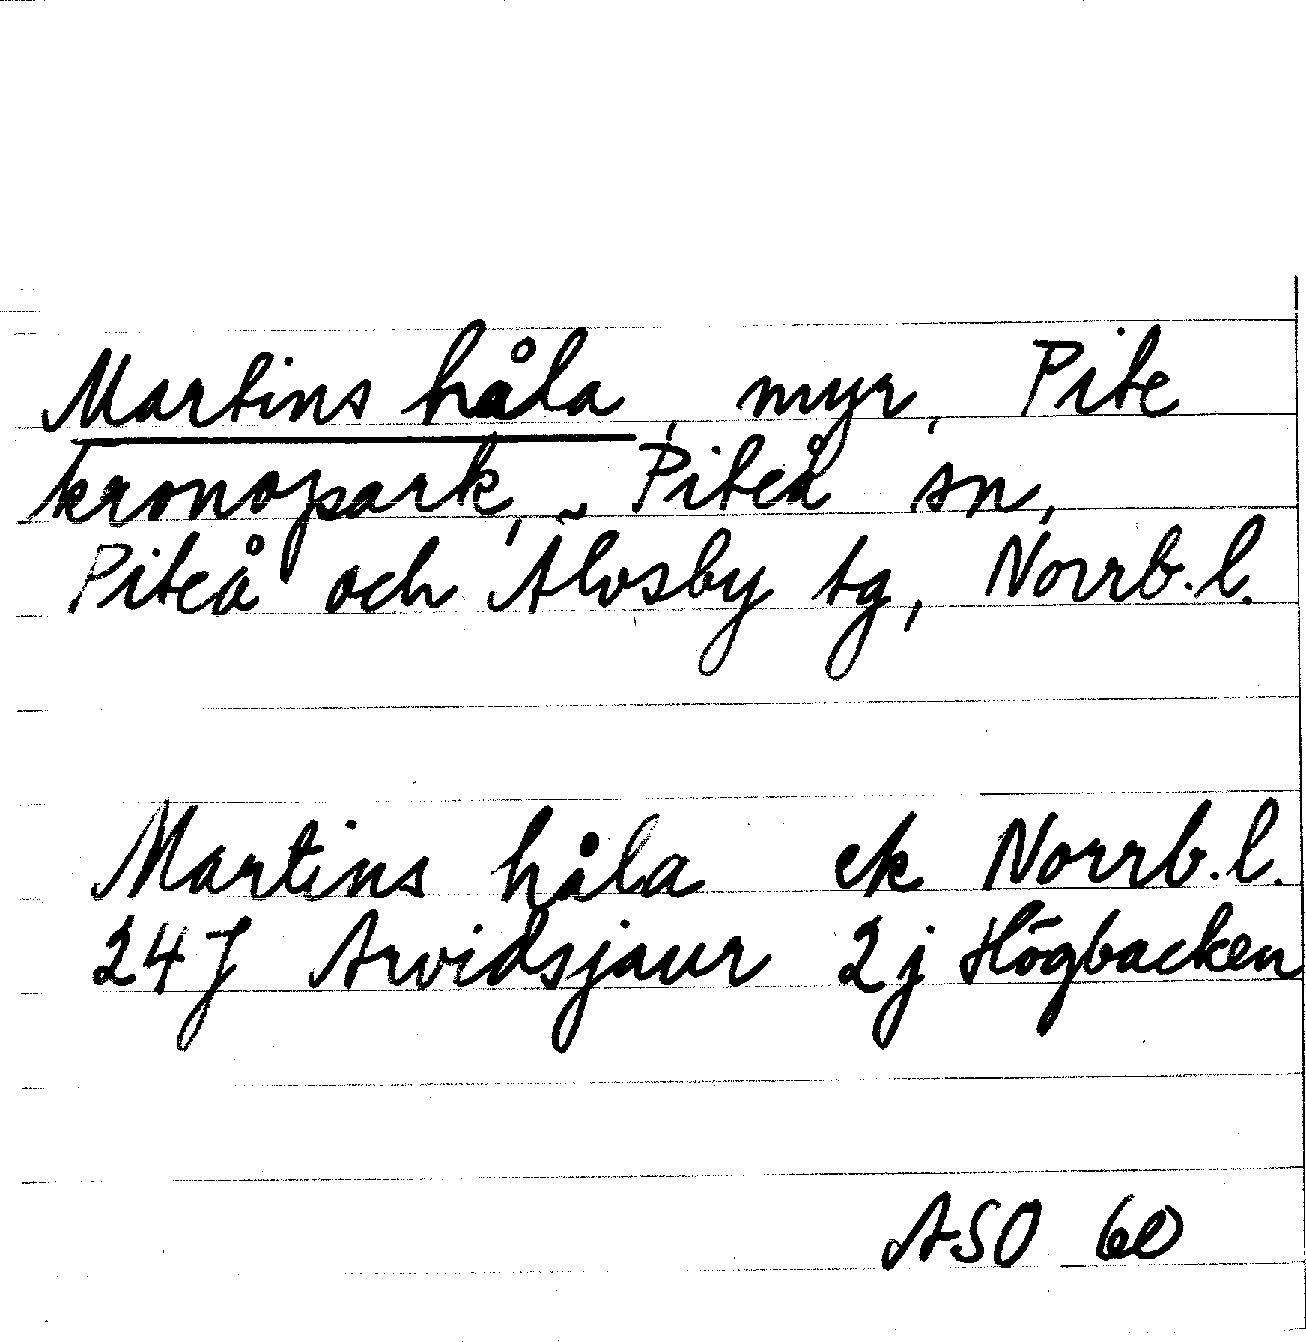 Martins håla, myr, Pite
kronopark, Piteå sn,
Piteå och Älvsby tg, Norrb.l.
Martins håla ek Norrb.l.
24J Arvidsjaur 2j Högbacken
ASO 60